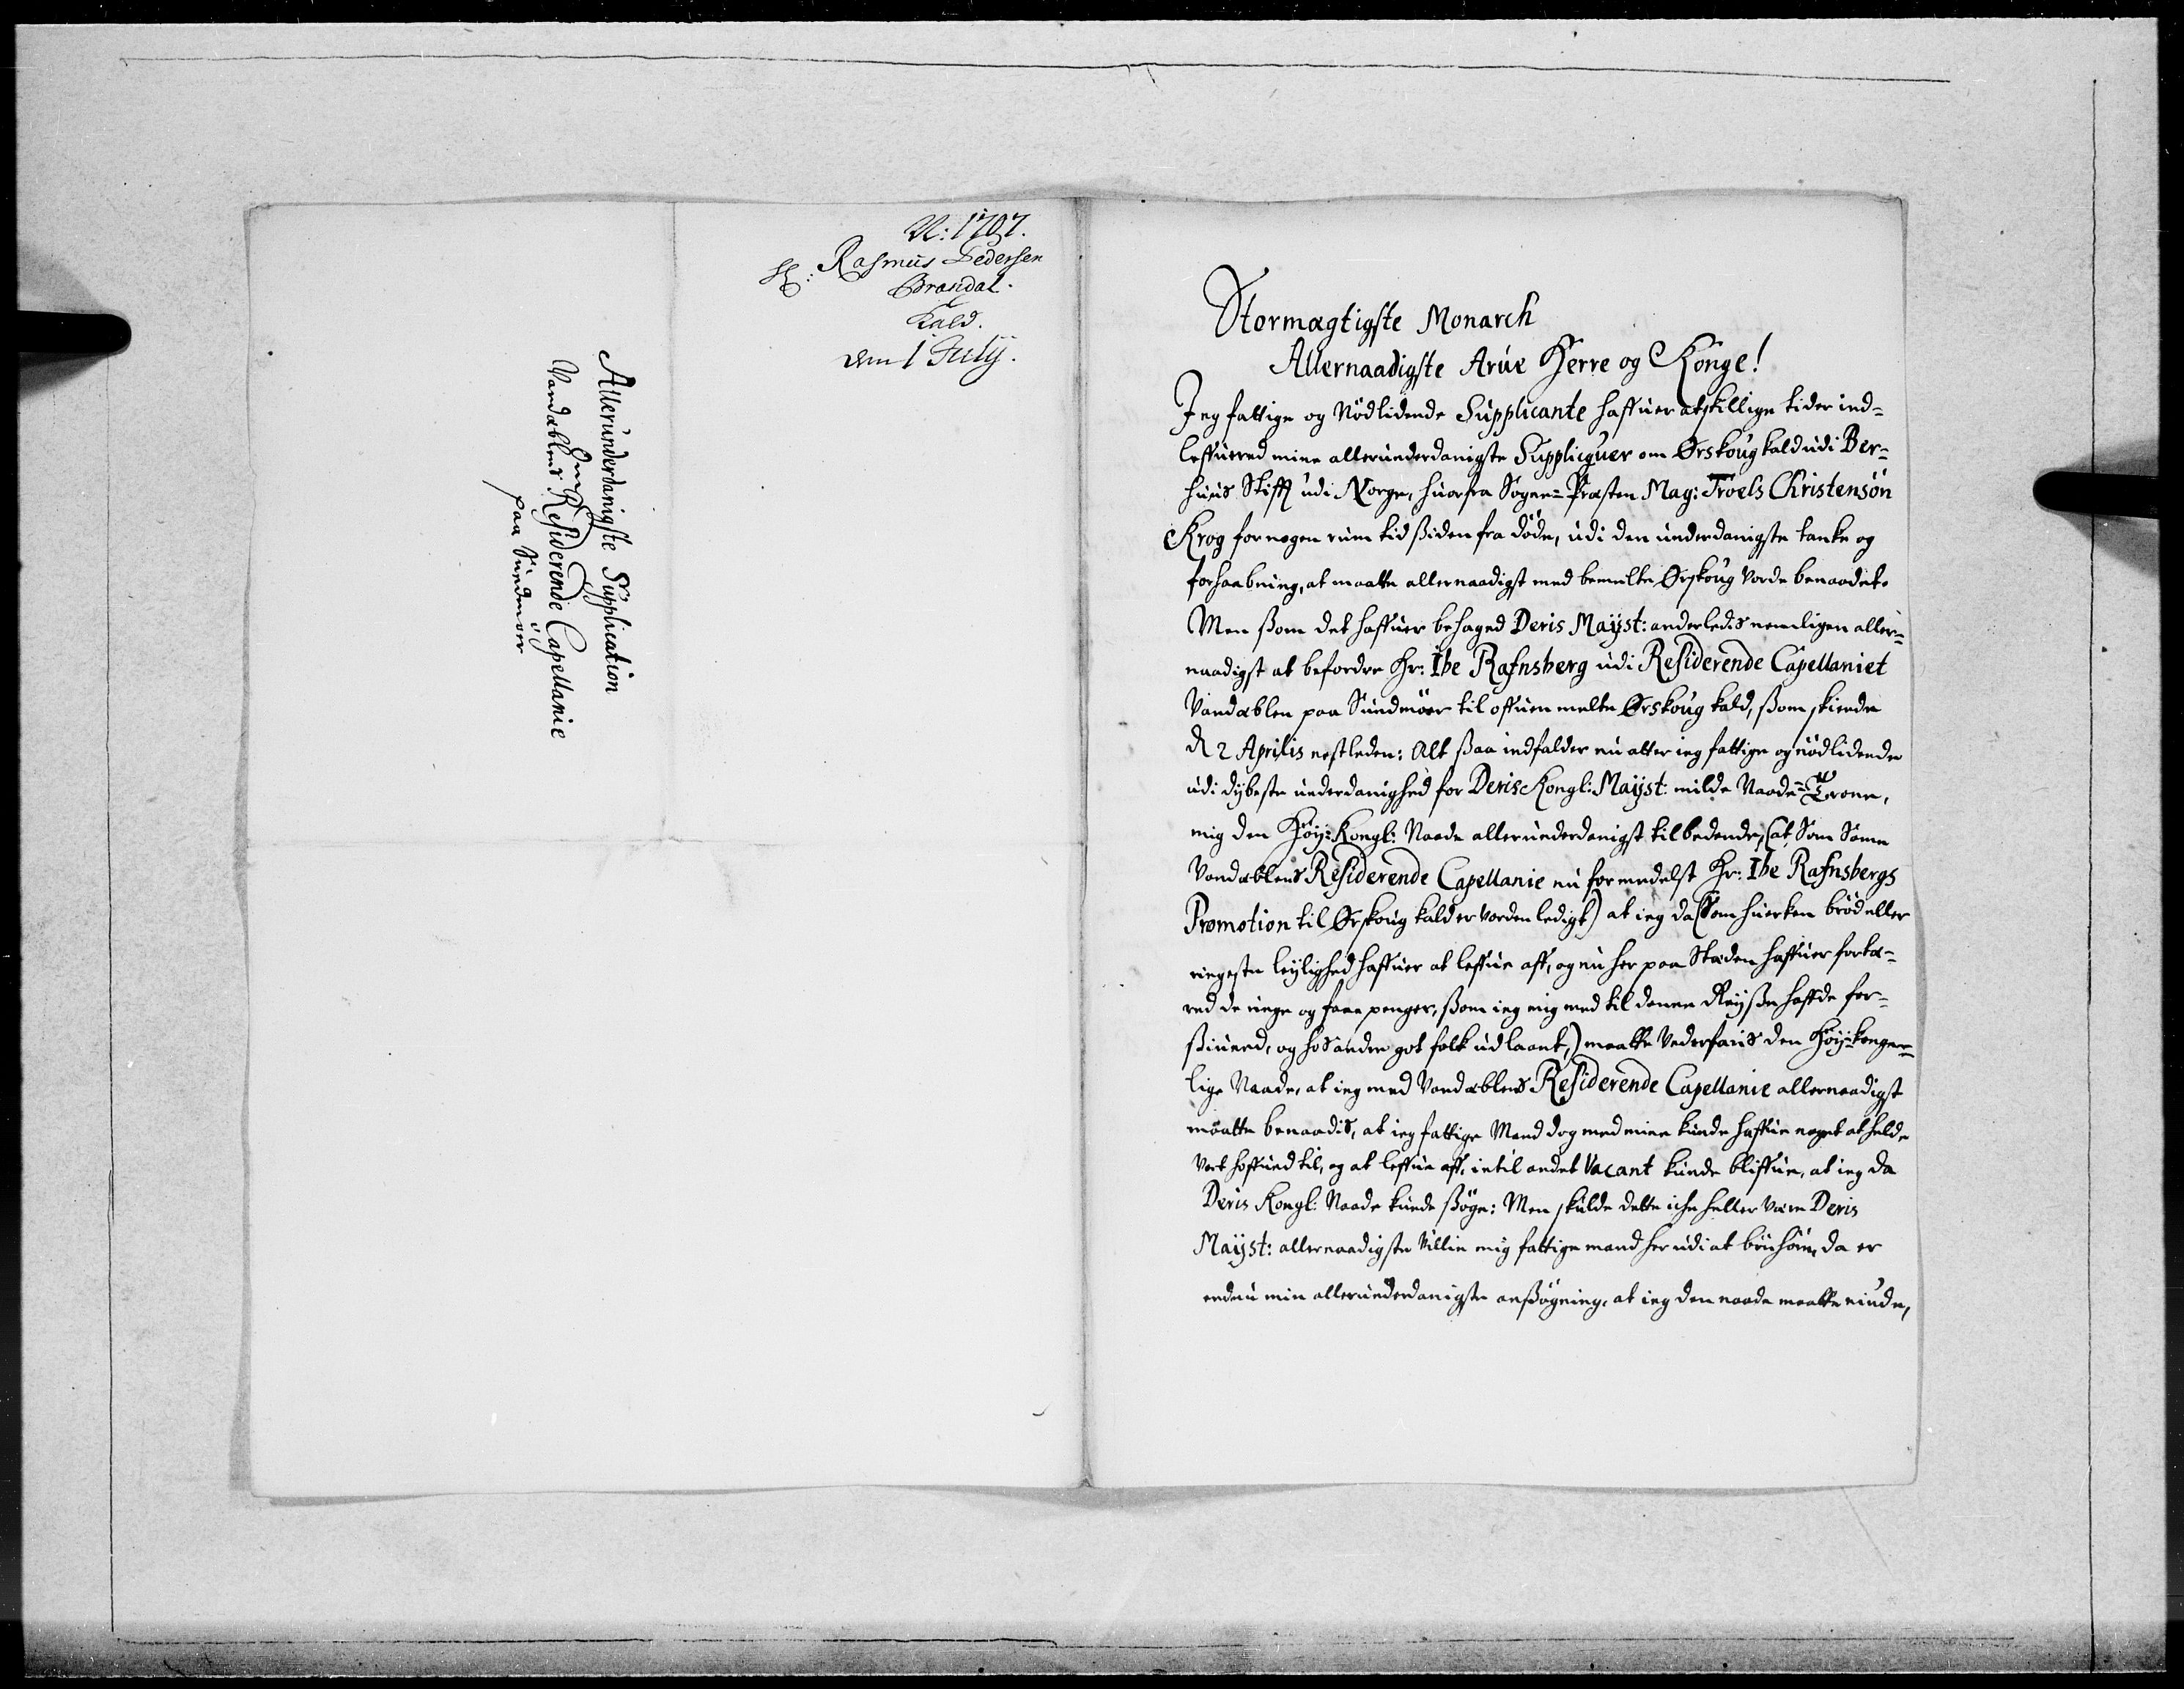 N: 1797.
H: Rasmus Pedersen
Brandal.
Kald.
den 1 Julij.
Allerunderdanigste Supplication
om
Vandæblens Residerende Capellanie
paa Sundmöer
Stormægtigste Monarch
Allernaadigste Arue Herre og Konge!
Jeg fattige og Nödlidende Supplicante haffuer atskillige tider ind-
leffuered mine allerunderdanigste Supplicquer om Ørskoug kald udi Ber-
huus Stifft udi Norge, huorfra Sogne-Præsten Mag: Troels Christensön
Krog for nogen rum tid ßiden fra döde, udi den underdanigste tanke og
forhaabning, at maatte allernaadigst med bemelte Ørskoug vorde benaadet.
Men ßom det haffuer behaged Deris Mayst: anderledis nemligen aller-
naadigst at befordre Hr: Ibe Rafnsberg udi Residerende Capellaniet
Vandæblen paa Sundmöer til offuen melte Ørskoug kald, ßom skiende
d 2 Aprilis nestleden: Alt ßaa indfalder nu atter ieg fattige og nödlidende
udi dybeste underdanighed for Deris Kongl: Mayst: milde Naade-Trone,
mig den Höy-Kongl: Naade allerunderdanigst tilbedende, (at Som Samme
Vandæblens Residerende Capellanie nu formedelst Hr: Ibe Rafnsbergs
Promotion til Ørskoug kald er vorden ledigt) at ieg da (Som huerken bröd eller
ringeste leylighed haffuer at leffue aff, og nu her paa Stæden haffuer fortæ-
red de ringe og faae penger, ßom ieg mig med til denne Reyße haffde for-
ßiuned, og hos andre got folk udlaant,) maatte vederfaris den Höy-konge-
lige Naade, at ieg med Vandæblens Residerende Capellanie allernaadigst
maatte benaadis, at ieg fattige Mand dog med mine kunde haffue noget at helde
vort hoffued til, og at leffue aff, intil andet Vacant kunde bliffue, at ieg da
Deris Kongl: Naade kunde ßöge: Men skulde dette iche heller være Deris
Mayst: allernaadigste Villie mig fattige mand her udi at bönhöre, da er
endnu min allerunderdanigste anßögning, at ieg den naade maatte niude,